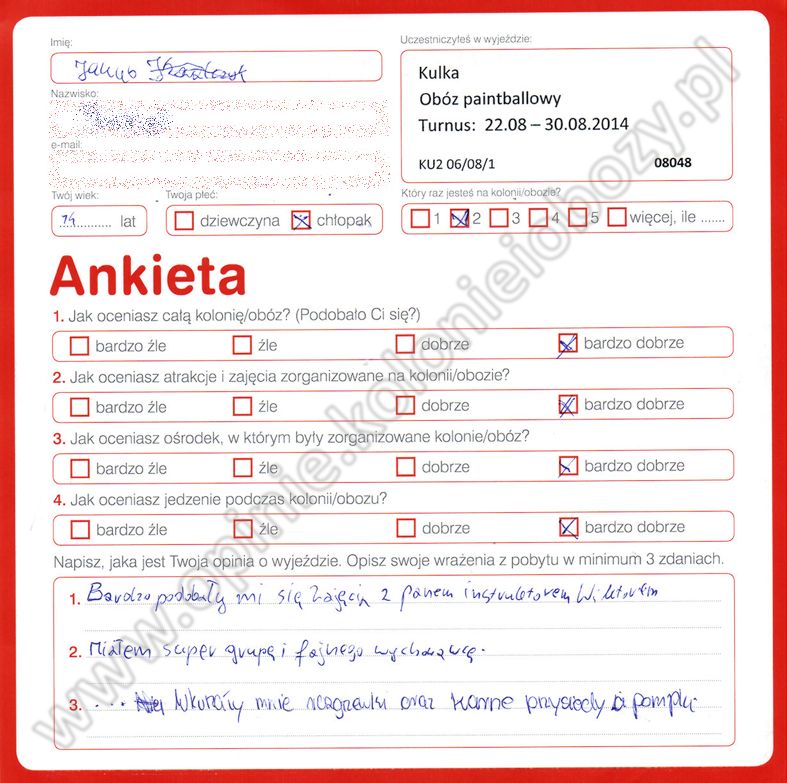 Imię:
Jakub
Nazwisko:
e-mail:
Twój wiek:
14 lat
Twoja płeć:
dziewczyna chłopak
Uczestniczyłeś w wyjeździe:
Kulka
Obóz paintballowy
Turnus: 22.08 – 30.08.2014
KU2 06/08/1 08048
Który raz jesteś na kolonii/obozie?
1 2 3 4 5 więcej, ile .......
Ankieta
1. Jak oceniasz całą kolonię/obóz? (Podobało Ci się?)
bardzo źle źle dobrze bardzo dobrze
2. Jak oceniasz atrakcje i zajęcia zorganizowane na kolonii/obozie?
bardzo źle źle dobrze bardzo dobrze
3. Jak oceniasz ośrodek, w którym były zorganizowane kolonie/obóz?
bardzo źle źle dobrze bardzo dobrze
4. Jak oceniasz jedzenie podczas kolonii/obozu?
bardzo źle źle dobrze bardzo dobrze
Napisz, jaka jest Twoja opinia o wyjeździe. Opisz swoje wrażenia z pobytu w minimum 3 zdaniach.
1. Bardzo podobały mi się zajęcia z panem instruktorem Wiktorem
2. Miałem super grupę i fajnego wychowawcę.
3. ... mnie oraz karne przysiady i pompki
www.opinie.kolonieiobozy.pl